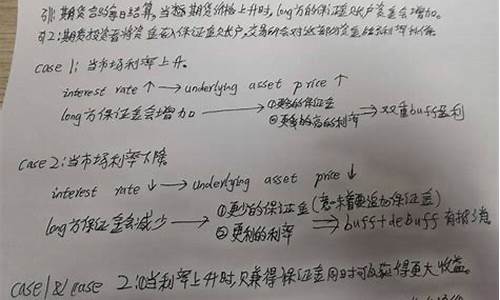 引1: 期货合约每日结算,当期货价格上升时,long方的保证金账户资金会增加。
引2: 期货投资者将资金存入保证金账户,交易所会对这部分资金
case 1: 当市场利率上升。
interest rate ↑ → underlying asset price ↑
long方保证金会增加 → ①更多的保证金 ②更高的利率 ⇒ 双重buff盈利
case 2: 当市场利率下降
interest rate ↓ → underlying asset price ↓
long方保证金会减少 → ①更少的保证金(意味着要追加保证金) ②更低的利率 ⇒ buff+debuff
case 1 & case 2: ①当利率上升时,只获得保证金同时可获得更大收益。